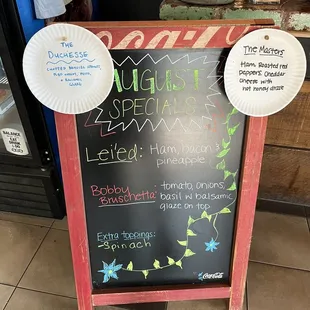 The
Duchesse
Coca-Cola
August
Specials
Lei'ed: Ham, bacon &
pineapple
Bobby
Bruschetta: tomato, onions,
basil w/ balsamic
glaze on top
Extra toppings:
-Spinach
Coca-Cola
The Masters:
Ham, Roasted red
peppers, Cheddar
cheese with
hot honey drizzle